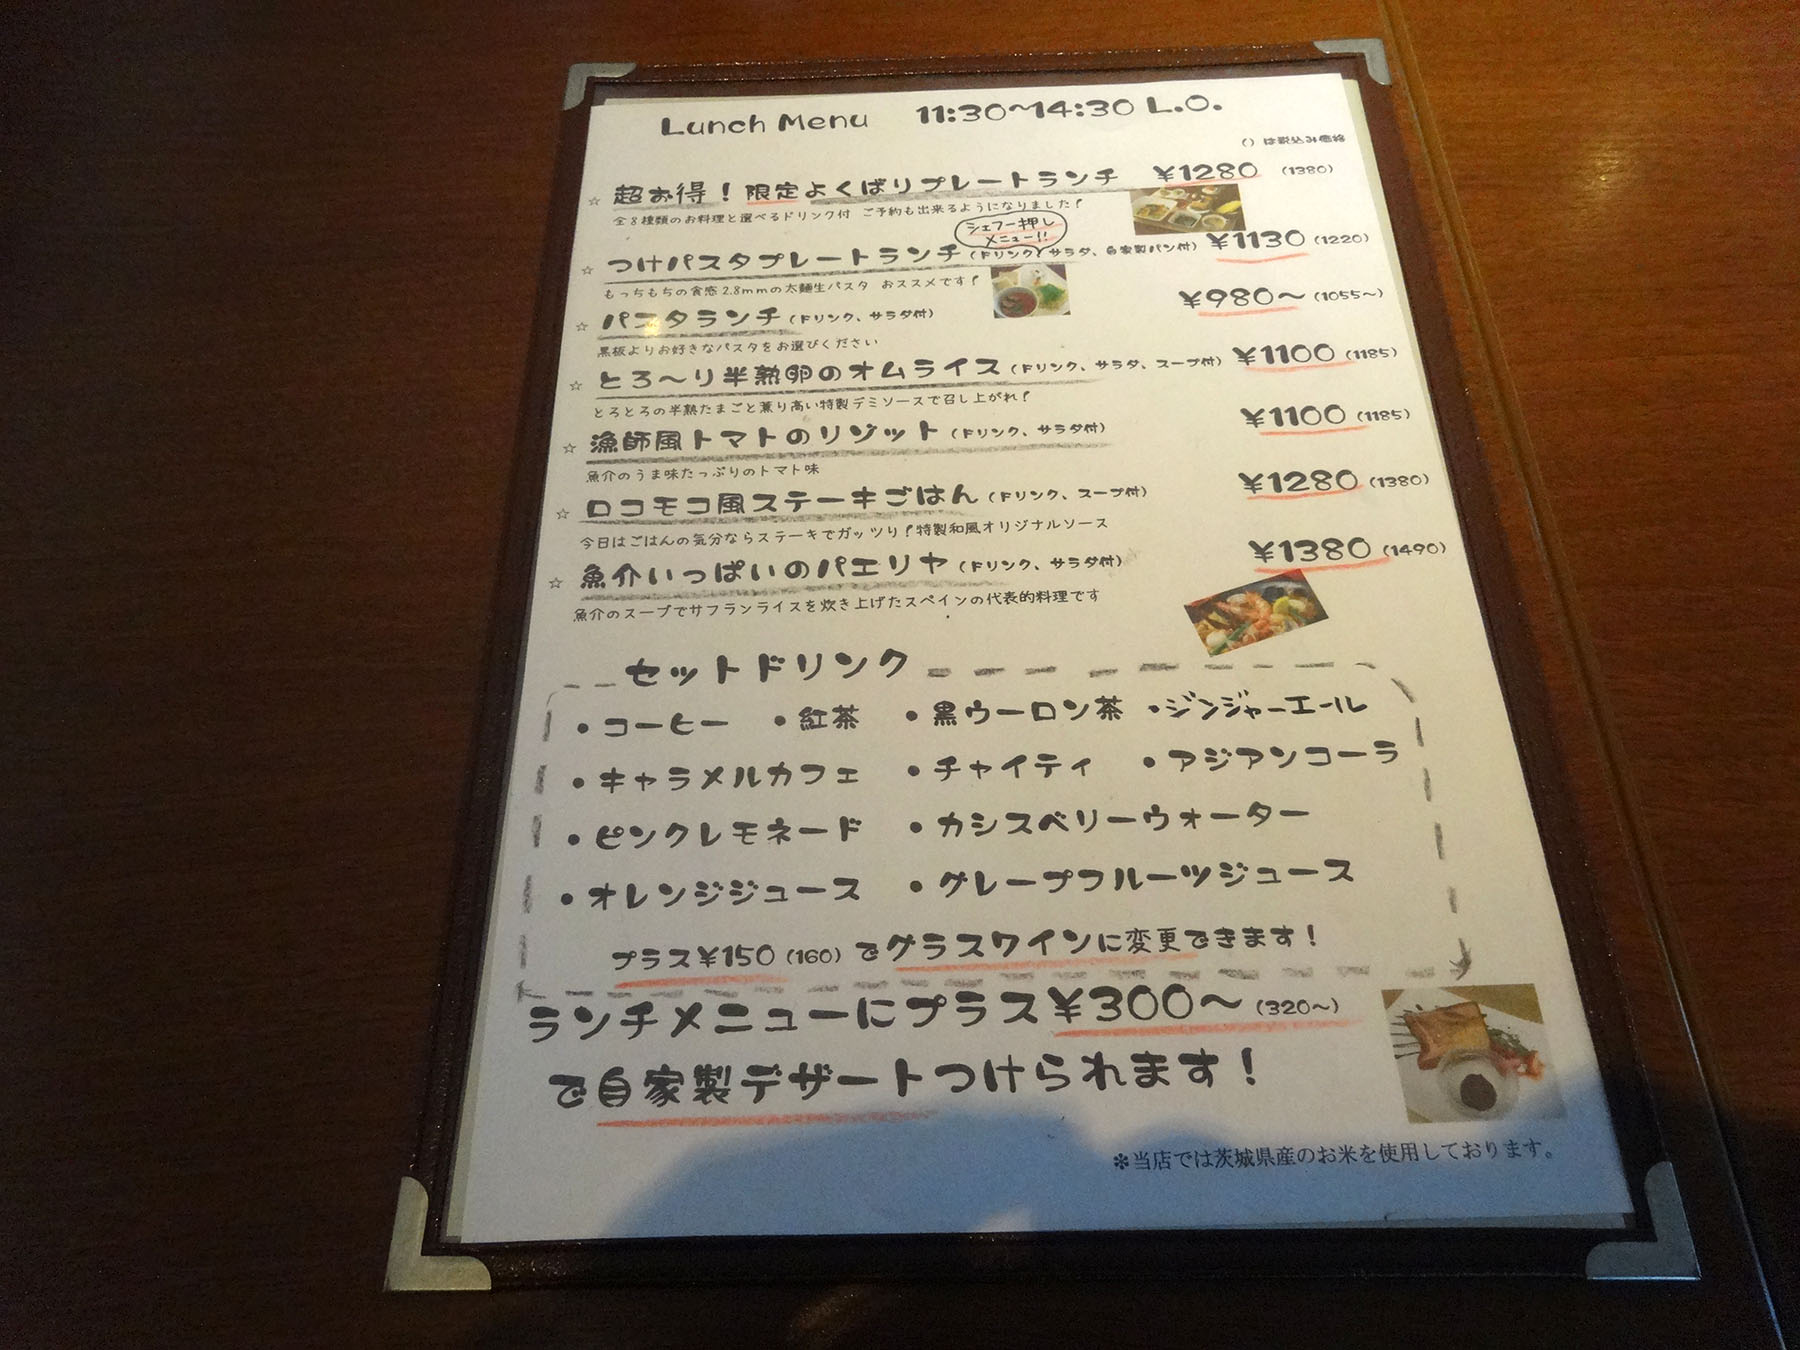 Lunch Menu 11:30~14:30 L.O.
()は税込み価格
☆ 超お得！限定よくばりプレートランチ ¥1280 (1380)
全8種類のお料理と選べるドリンク付 ご予約も出来るようになりました！
シェフ一押し
メニュー!!
☆ つけパスタプレートランチ(ドリンク、サラダ、自家製パン付) ¥1130 (1220)
もっちもちの食感2.8mmの太麺生パスタ おススメです！
☆ パスタランチ(ドリンク、サラダ付) ¥980〜 (1055〜)
黒板よりお好きなパスタをお選びください
☆ とろ〜り半熟卵のオムライス(ドリンク、サラダ、スープ付) ¥1100 (1185)
とろとろの半熟たまごと薫り高い特製デミソースで召し上がれ！
☆ 漁師風トマトのリゾット(ドリンク、サラダ付) ¥1100 (1185)
魚介のうま味たっぷりのトマト味
☆ ロコモコ風ステーキごはん(ドリンク、スープ付) ¥1280 (1380)
今日はごはんの気分ならステーキでガッツリ！特製和風オリジナルソース
☆ 魚介いっぱいのパエリヤ(ドリンク、サラダ付) ¥1380 (1490)
魚介のスープでサフランライスを炊き上げたスペインの代表的料理です
セットドリンク
・コーヒー ・紅茶 ・黒ウーロン茶 ・ジンジャーエール
・キャラメルカフェ ・チャイティ ・アジアンコーラ
・ピンクレモネード ・カシスベリーウォーター
・オレンジジュース ・グレープフルーツジュース
プラス¥150 (160) でグラスワインに変更できます！
ランチメニューにプラス¥300〜 (320〜)
で自家製デザートつけられます！
＊当店では茨城県産のお米を使用しております。